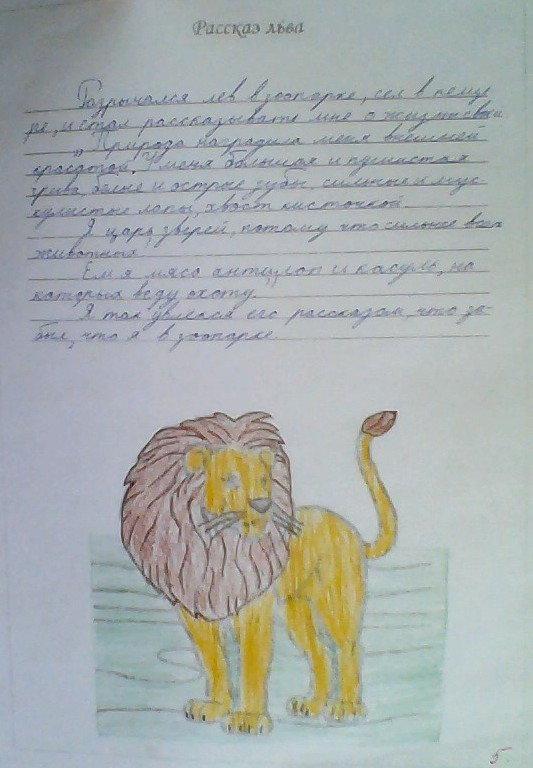 Рассказ льва
Разрычался лев в зоопарке, сел в пеще-
ре, и стал рассказывать мне о жизни своей.
„Природа наградила меня внешней
красотой. У меня большая и пушистая
грива, белые и острые зубы, сильные и мус-
кулистые лапы, хвост кисточкой.
Я царь зверей, потому что сильнее всех
животных.
Ем я мясо антилоп и касуль, на
которых веду охоту."
Я так увлёкся его рассказом, что за-
был, что я в зоопарке.
5.